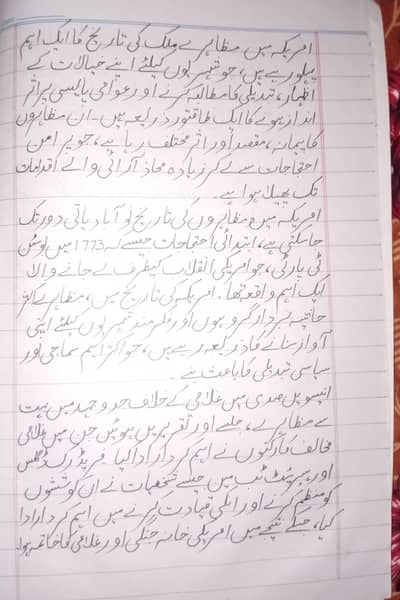 امریکہ میں مظاہرے ملک کی تاریخ کا ایک اہم
پہلو رہے ہیں، جو شہریوں کیلئے اپنے خیالات کے
اظہار، تبدیلی کا مطالبہ کرنے اور عوامی پالیسی پر اثر
انداز ہونے کا ایک طاقتور ذریعہ ہیں۔ ان مظاہروں
کا پیمانہ، مقصد اور اثر مختلف رہا ہے، جو پر امن
احتجاجات سے لے کر زیادہ محاذ آرائی والے اقدامات
تک پھیلا ہوا ہے۔
امریکہ میں مظاہروں کی تاریخ نو آبادیاتی دور تک
جا سکتی ہے، ابتدائی احتجاجات جیسے کہ 1773 میں بوسٹن
ٹی پارٹی، جو امریکی انقلاب کیطرف لے جانے والا
ایک اہم واقعہ تھا۔ امریکہ کی تاریخ میں، مظاہرے اکثر
حاشیہ بردار گروہوں اور فکر مند شہریوں کیلئے اپنی
آواز سنانے کا ذریعہ رہے ہیں، جو اکثر اہم سماجی اور
سیاسی تبدیلی کا باعث بنے۔
انیسویں صدی میں غلامی کے خلاف جدوجہد میں بہت
سے مظاہرے، جلسے اور تقریریں ہوئیں جن میں غلامی
مخالف کارکنوں نے اہم کردار ادا کیا۔ فریڈرک ڈگلس
اور ہیریٹ ٹب مین جیسے شخصیات نے ان کوششوں
کو منظم کرنے اور انکی قیادت کرنے میں اہم کردار ادا
کیا، جسکے نتیجے میں امریکی خانہ جنگی اور غلامی کا خاتمہ ہوا۔